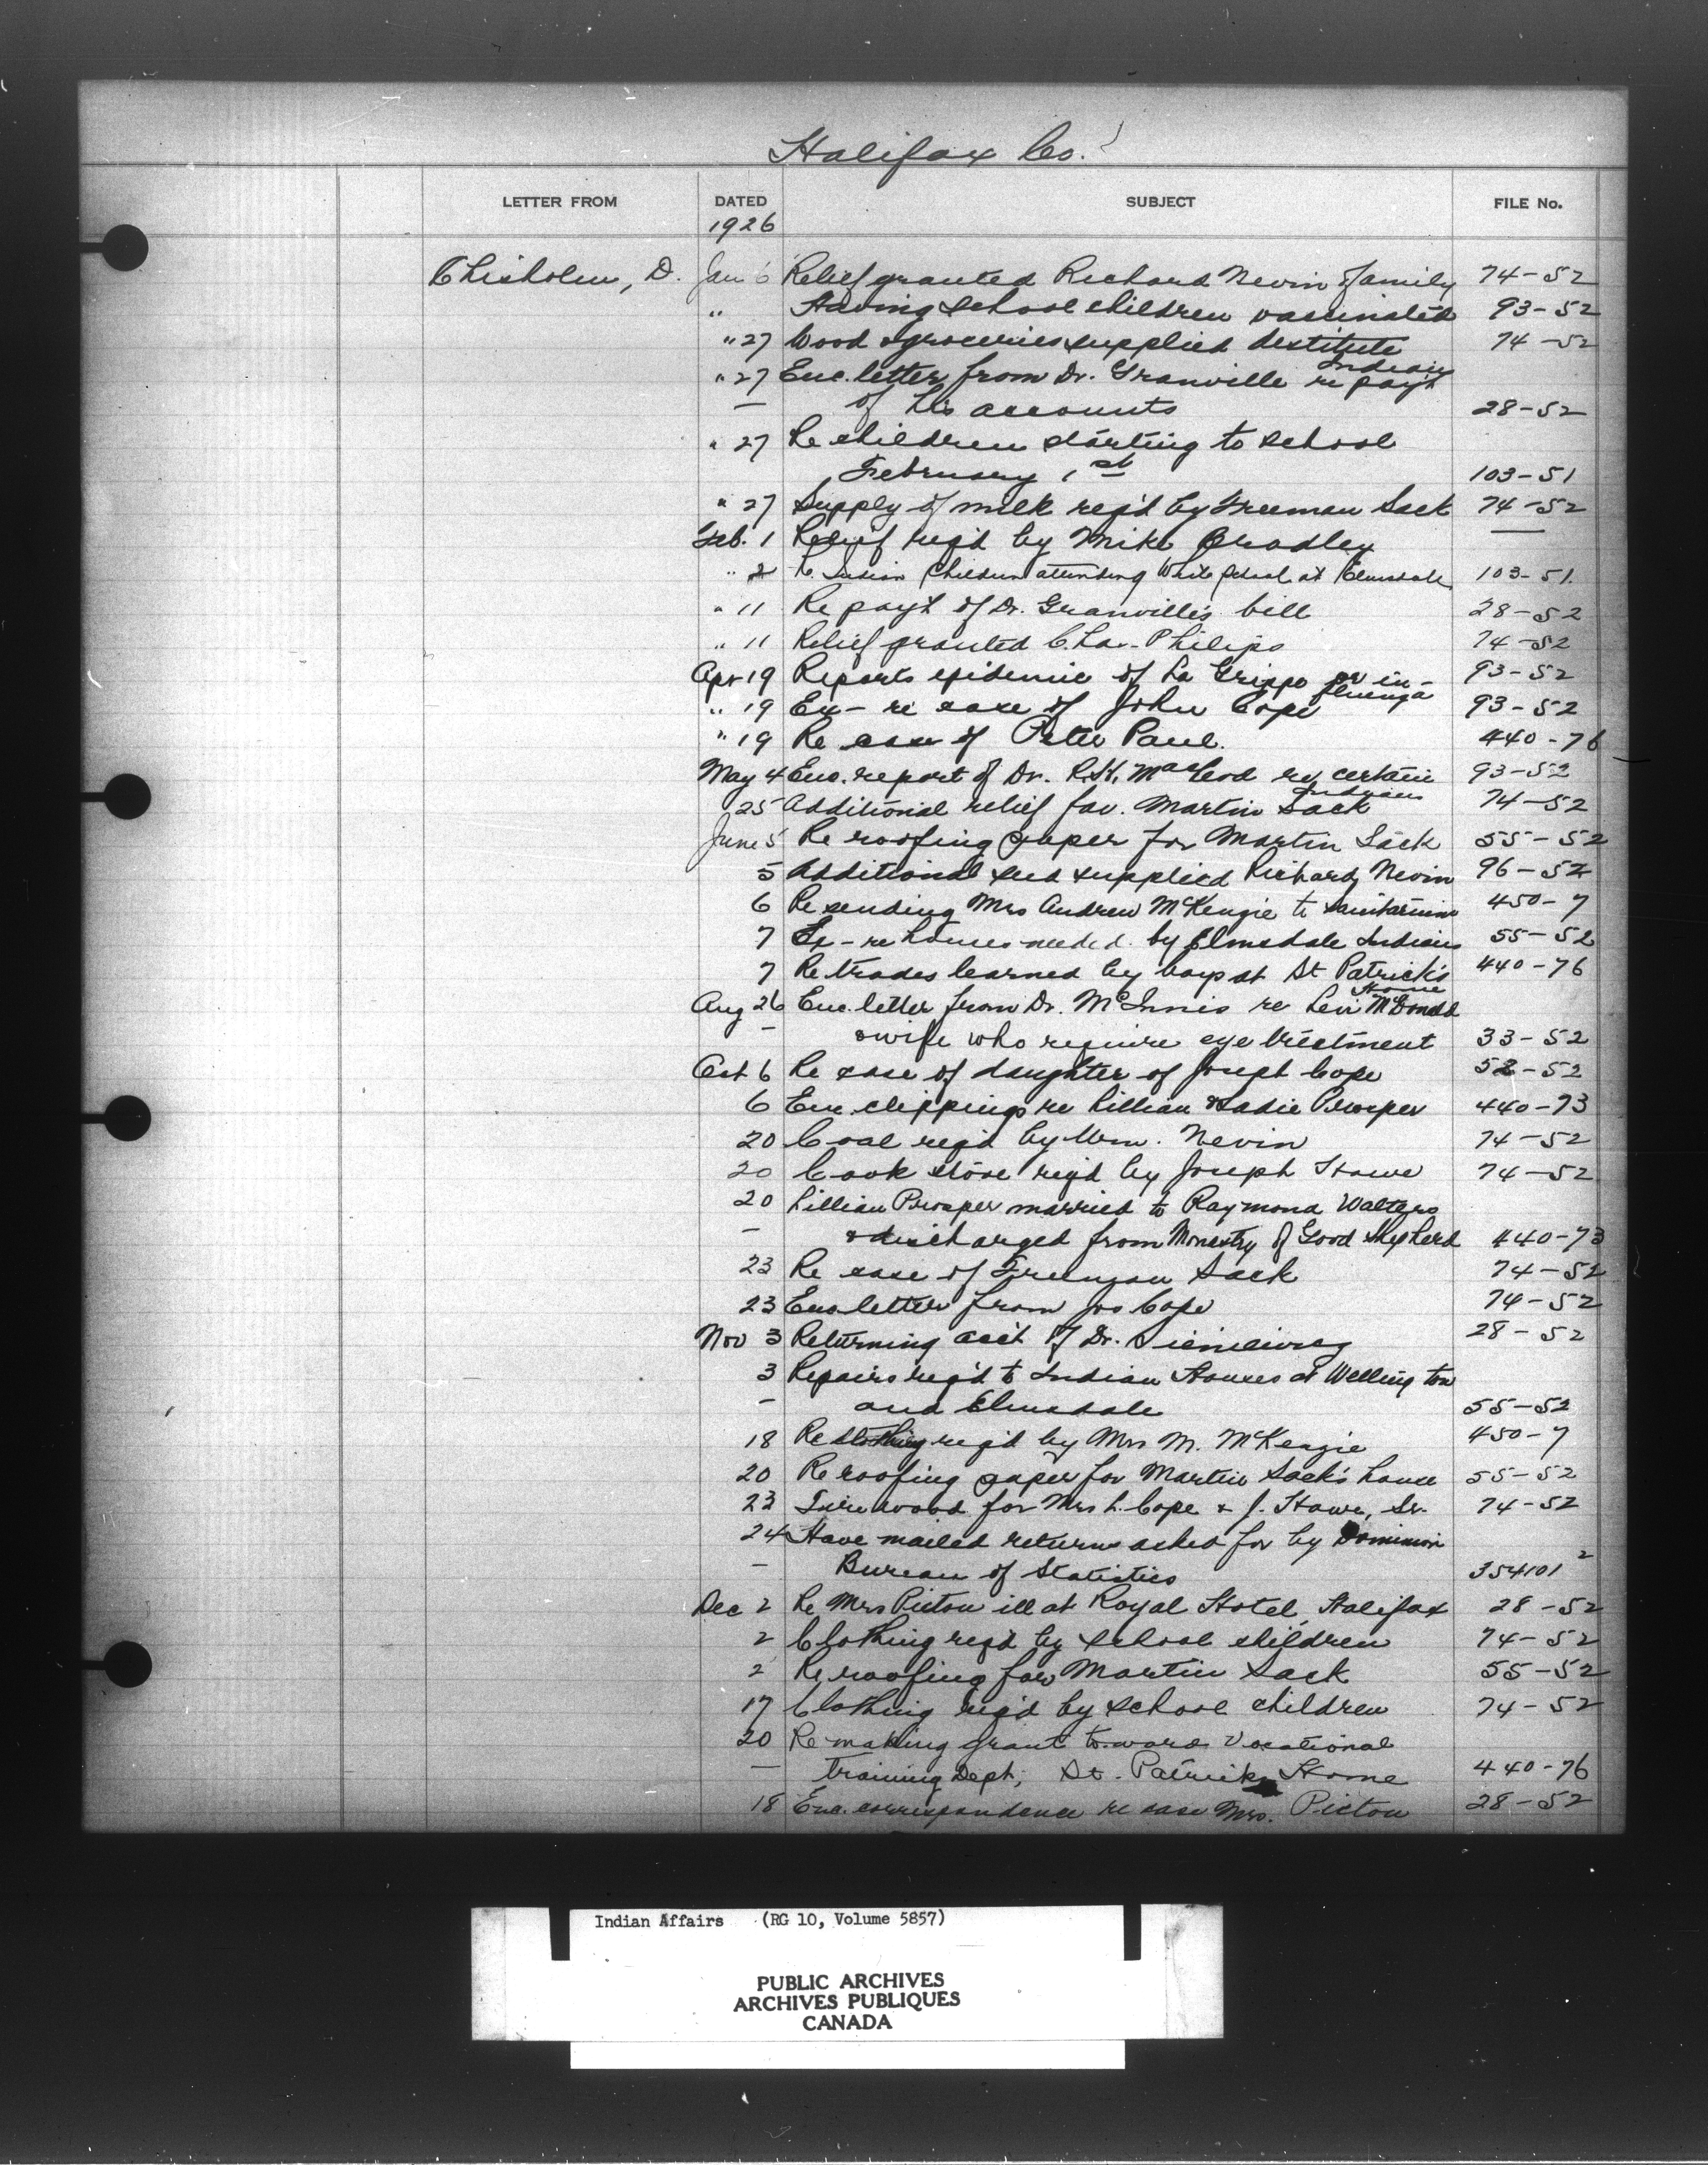 Halifax Co.
LETTER FROM DATED SUBJECT FILE No.
1926
Chisholm, D. Jan 6 Relief granted Richard Nevin & family 74-52
" Having school children vaccinated 93-52
" 27 Wood & groceries supplied destitute 74-52
Indians
" 27 Enc. letter from Dr. Granville re pay't
— of his accounts 28-52
" 27 Re children starting to school
February 1st 103-51
" 27 Supply of milk req'd by Freeman Sack 74-52
Feb. 1 Relief req'd by Mike Bradley —
" 2 Re Indian Children attending White School at Elmsdale 103-51.
" 11 Re pay't of Dr. Granville's bill 28-52
" 11 Relief granted Chas. Philips 74-52
Apr 19 Reports epidemic of La Grippe or in- 93-52
fluenza
" 19 Ex- re case of John Cope 93-52
" 19 Re case of Peter Paul. 440-76
May 4 Enc. report of Dr. R.H. MacLeod re certain 93-52
Indians
25 Additional relief for Martin Sack 74-52
June 5 Re roofing paper for Martin Sack 55-52
5 Additional seed supplied Richard Nevin 96-52
6 Re sending Mrs Andrew McKenzie to sanitarium 450-7
7 Ex- re houses needed by Elmsdale Indians 55-52
7 Re trades learned by boys at St Patrick's 440-76
Home
Aug 26 Enc. letter from Dr. McInnis re Levi McDonald
— & wife who require eye treatment 33-52
Oct 6 Re case of daughter of Joseph Cope 52-52
6 Enc clippings re Lillian & Sadie Prosper 440-73
20 Coal req'd by Wm. Nevin 74-52
20 Cook stove req'd by Joseph Howe 74-52
20 Lillian Prosper married to Raymond Walters
— & discharged from Monestry of Good Shepherd 440-73
23 Re case of Freeman Sack 74-52
23 Enc letter from Jos Cope 74-52
Nov 3 Returning acc't of Dr. 28-52
3 Repairs req'd to Indian Houses at Wellington
— and Elmsdale 55-52
18 Re clothing req'd by Mrs M. McKenzie 450-7
20 Re roofing paper for Martin Sack's house 55-52
23 Fire wood for Mrs L. Cope & J. Howe, Sr. 74-52
24 Have mailed returns asked for by Dominion
— Bureau of Statistics 354101 2
Dec 2 Re Mrs Picton ill at Royal Hotel, Halifax 28-52
2 Clothing req'd by school children 74-52
2 Re roofing for Martin Sack 55-52
17 Clothing req'd by school children 74-52
20 Re making grant towards Vocational
— training Dept; St. Patricks Home 440-76
18 Enc. correspondence re case Mrs. Picton 28-52
Indian Affairs (RG 10, Volume 5857)
PUBLIC ARCHIVES
ARCHIVES PUBLIQUES
CANADA